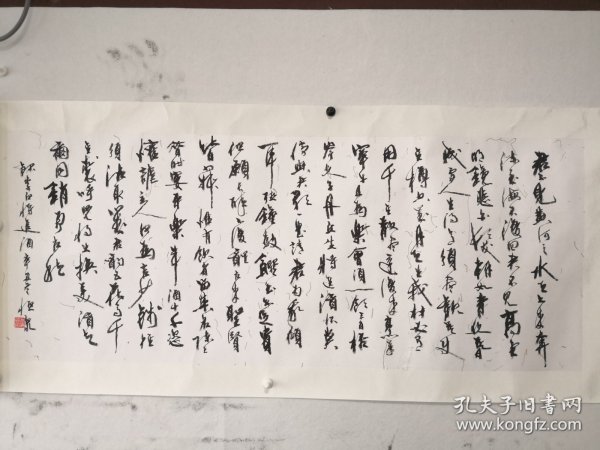 君不見黄河之水天上来奔
流到海不復回君不見高堂
明鏡悲白髮朝如青絲暮
成雪人生得意須盡歡莫使
金樽空對月天生我材必有
用千金散盡還復来烹羊
宰牛且為樂會須一飲三百杯
岑夫子丹丘生將進酒杯莫
停與君歌一曲請君為我傾
耳聽鐘鼓饌玉不足貴
但願長醉不復醒古来聖賢
皆寂寞惟有飲者留其名陳王
昔時宴平樂斗酒十千恣
歡謔主人何為言少錢徑
須沽取對君酌五花馬千
金裘呼兒將出換美酒與
爾同銷萬古愁
録李白將進酒辛丑冬
孔夫子旧书网
www.kongfz.com